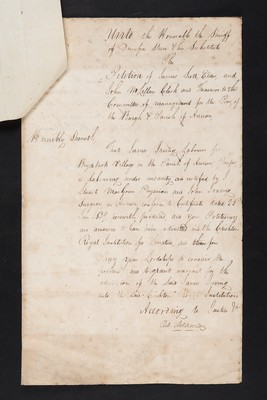 Unto the Honorable the Sheriff
of Dumfries Shire & his Substitute
The
Petition of James Scott and
John McLellan Clerk and Treasurer to the
Committee of management for the Poor of
the Burgh & Parish of Annan
Humbly Sheweth,
That James Irving Labourer
Village in the Parish of Annan
is labouring under insanity as certified by
Stewart Physician and John Irving
Surgeon in Annan conform to Certificate dated 23d
presented and your Petitioners
are anxious to have him admitted into the Crichton
Royal Institution for Lunatics
May your Lordship to consider the
and to grant warrant for the
admission of the said James Irving
into the said Crichton Royal Institution
According to Justice &c